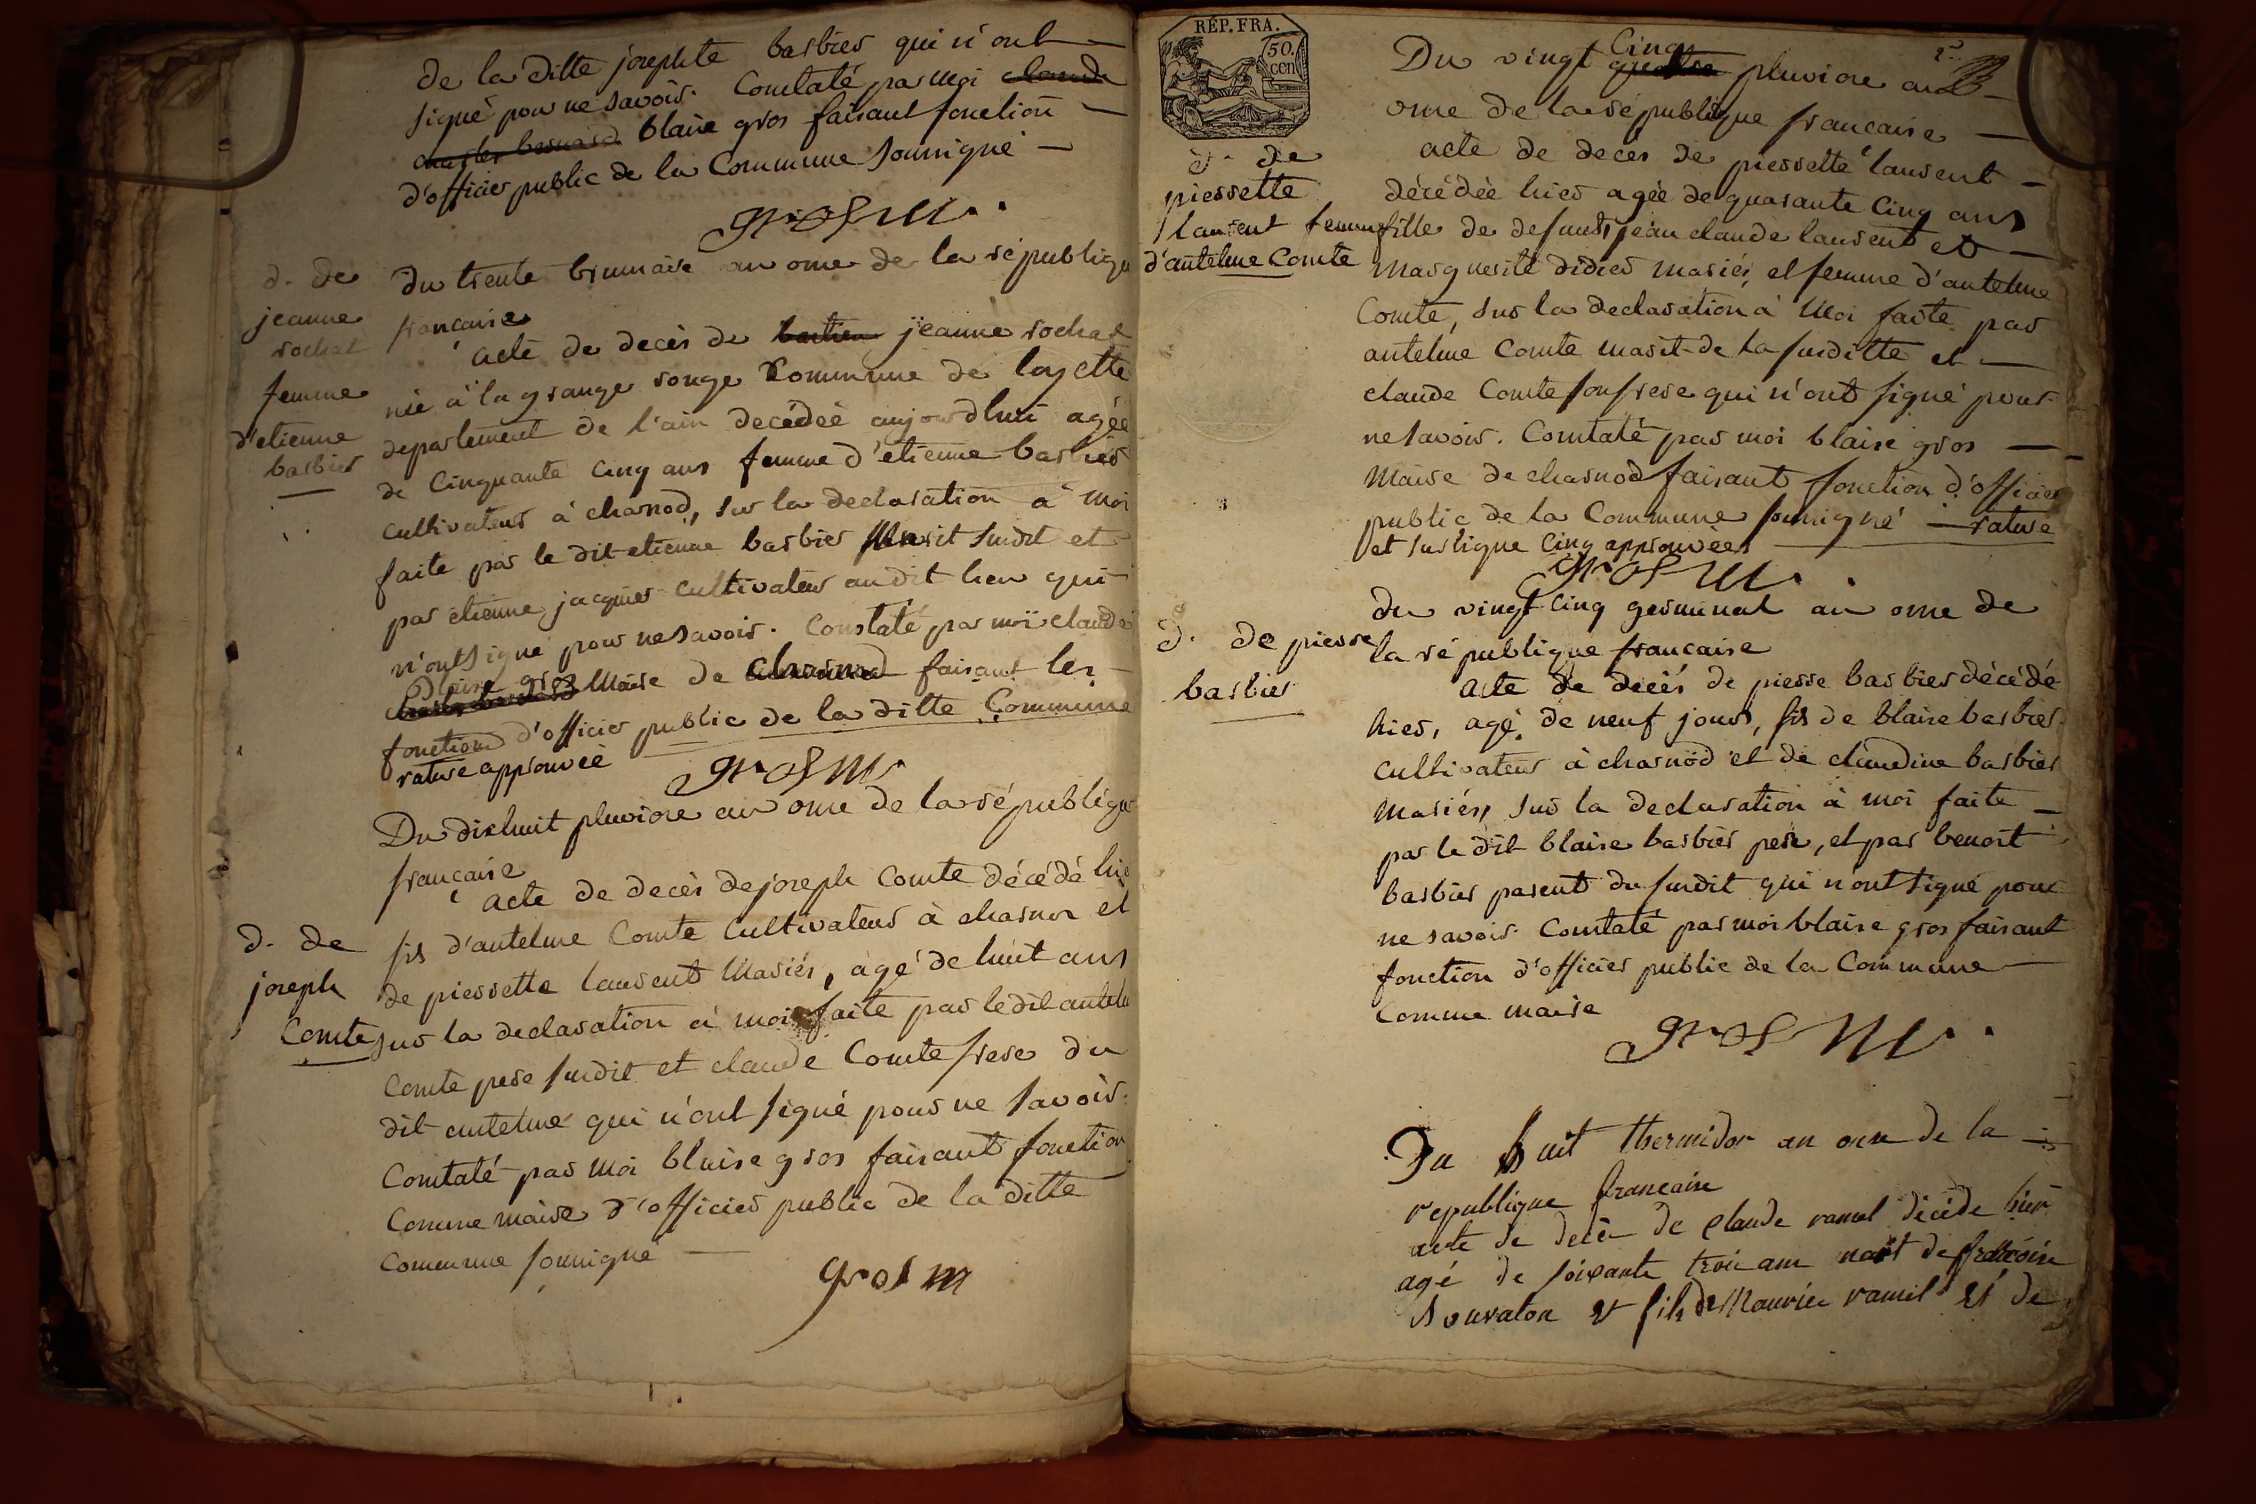 de la ditte josephte barbier qui n'ont
signé pour ne savoir. Constaté par moi claude
charles bernard blaise gros faisant fonction
d'officier public de la Commune soussigné
gros m
d. de
jeanne
rochat
femme
d'etienne
barbier
du trente brumaire an onze de la républiqu
francaise
acte de decès de jeanne rochat
née à la grange rouge Commune de
departement de l'ain decédeé aujourdhui agée
de Cinquante Cinq ans femme d'etienne barbier
Cultivateur à charnod, sur la declaration à moi
faite par le dit etienne barbier Marit susdit et
par etienne jacquier cultivateur audit lieu qui
n'ont signé pour ne savoir. Constaté par moi claude
blaise gros Maire de charnod faisant les
fonctions d'officier public de la ditte Commune
rature approuvée
gros m
Du dixhuit pluviose an onze de la républiqu
francaise
d. de
joseph
Comte
acte de decès de joseph Comte décédé hie
fils d'antelme Comte Cultivateur à charnoz et
de pierrette laurent Mariés, agé de huit ans
sur la declaration à moi faite par le dit antelm
Comte pere susdit et claude Comte frere du
dit antelme qui n'ont signé pour ne savoir.
Constaté par moi blaise gros faisant fonction
Comme maire d'officier public de la ditte
Commune soussigné
gros m
RÉP. FRA.
50.
cen
Du vingt Cinq quatre pluviose an
onze de la république francaise
d. de
pierrette
laurent femme
d'antelme Comte
acte de deces de pierrette laurent
décédée hier agée de quarante Cinq ans
fille de defunts jean claude laurent et
marguerite didier mariés, et femme d'antelme
Comte, sur la declaration à Moi faite par
antelme Comte marit de la susditte et
claude Comte son frere qui n'ont signé pour
ne savoir. Constaté par moi blaise gros
Maire de charnod faisant fonction d'officier
public de la Commune soussigné rature
et surligne Cinq approuvées
gros m
du vingt Cinq germinal an onze de
la république francaise
d. de pierre
barbier
acte de decès de pierre barbier décédé
hier, agé de neuf jours, fils de blaise barbier
cultivateur à charnod et de claudine barbier
mariés, sur la declaration à moi faite
par le dit blaise barbier pere, et par benoit
barbier parent du susdit qui n'ont signé pour
ne savoir. Constaté par moi blaise gros faisant
fonction d'officier public de la Commune
Comme maire
gros m
Du huit thermidor an onze de la
republique francaise
acte de decès de claude ramel décédé hier
agé de soixante trois ans de francoise
et fils de Maurice ramel et de